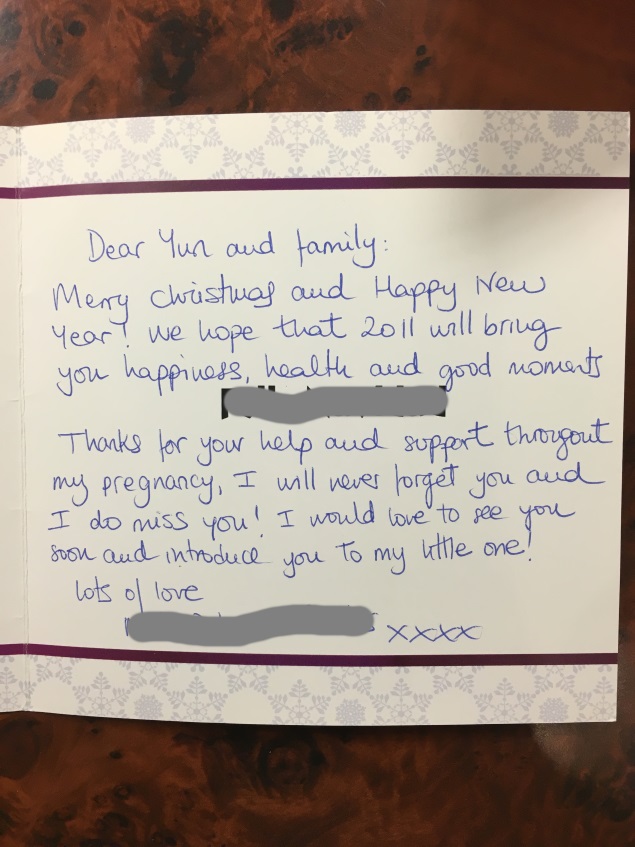 Dear Yun and family:
Merry Christmas and Happy New
Year! We hope that 2011 will bring
you happiness, health and good moments
Thanks for your help and support througout
my pregnancy, I will never forget you and
I do miss you! I would love to see you
soon and introduce you to my little one!
Lots of love
xxxx